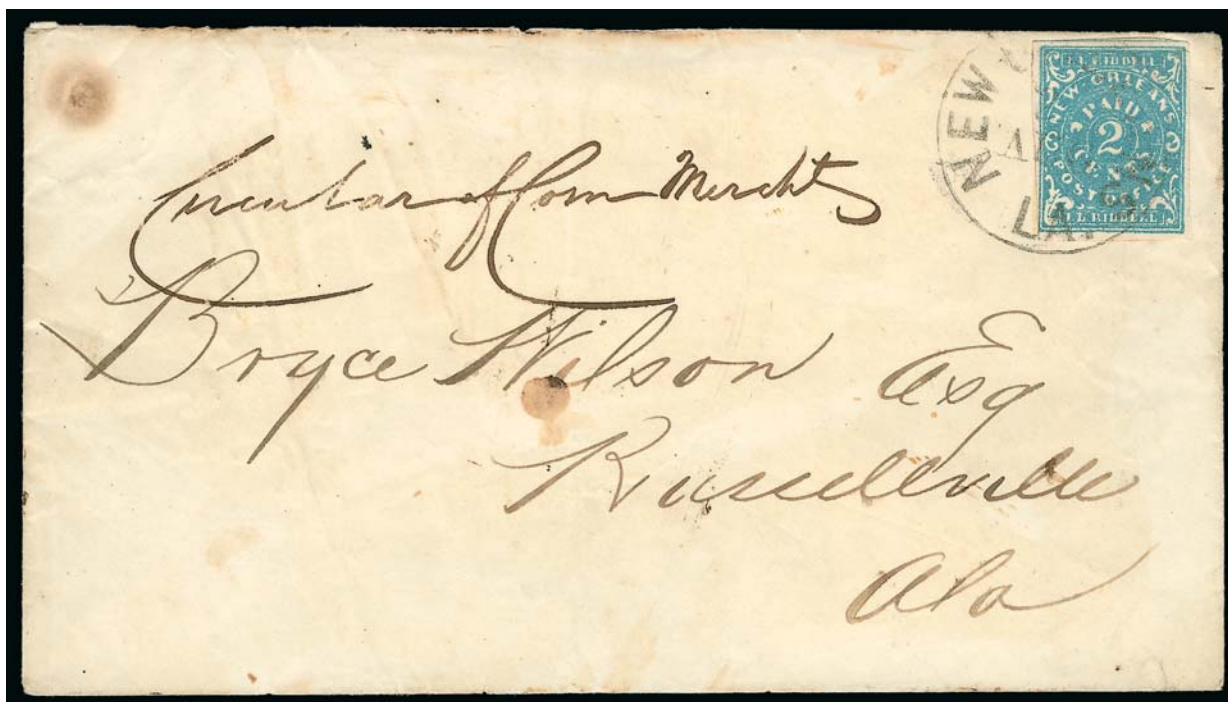 NEW
LA.
J.L. RIDDELL
NEW ORLEANS
PAID
2
CENTS
POST OFFICE
J.L. RIDDELL
Circular of Com Mercht
Bryce Wilson Esq
Russellville
Ala